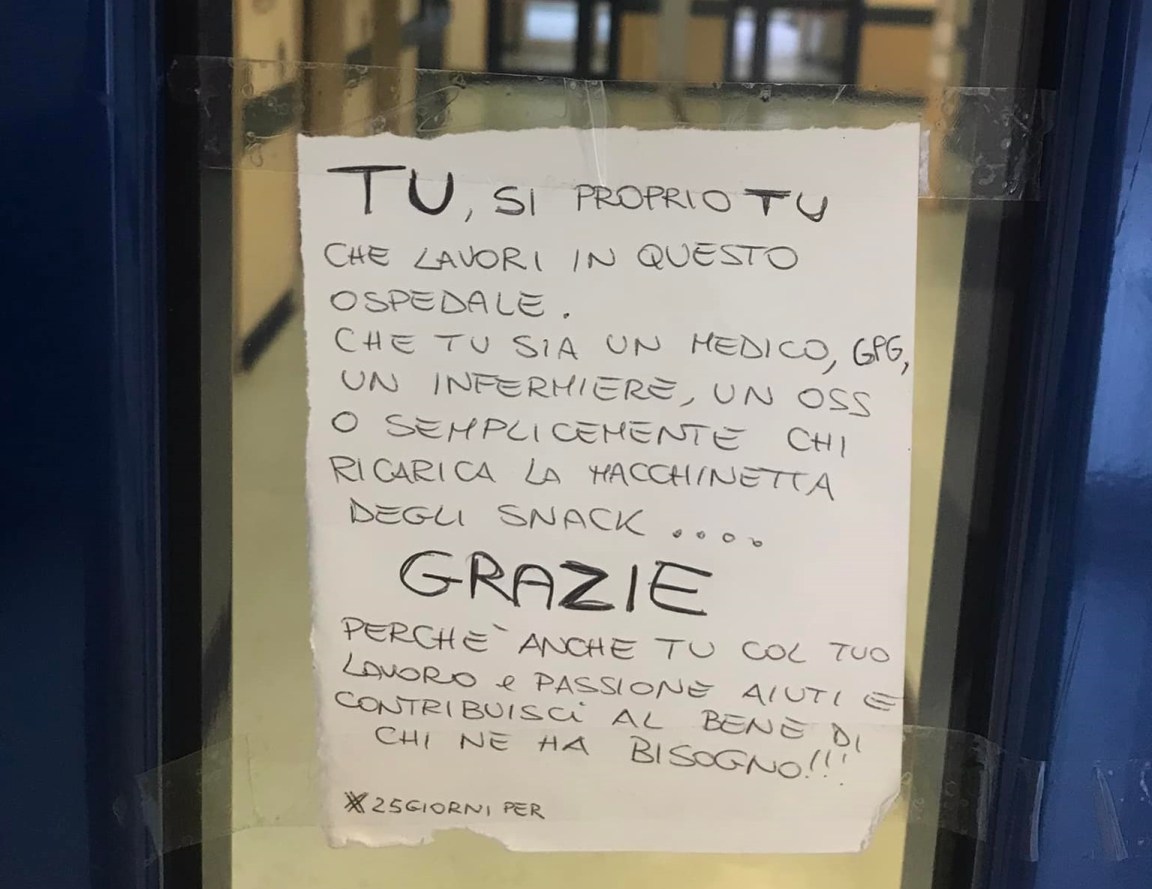 TU, SI PROPRIO TU
CHE LAVORI IN QUESTO
OSPEDALE.
CHE TU SIA UN MEDICO, GPG,
UN INFERMIERE, UN OSS
O SEMPLICEMENTE CHI
RICARICA LA MACCHINETTA
DEGLI SNACK ....
GRAZIE
PERCHE` ANCHE TU COL TUO
LAVORO e PASSIONE AIUTI E
CONTRIBUISCi AL BENE DI
CHI NE HA BISOGNO!!!
25GIORNI PER